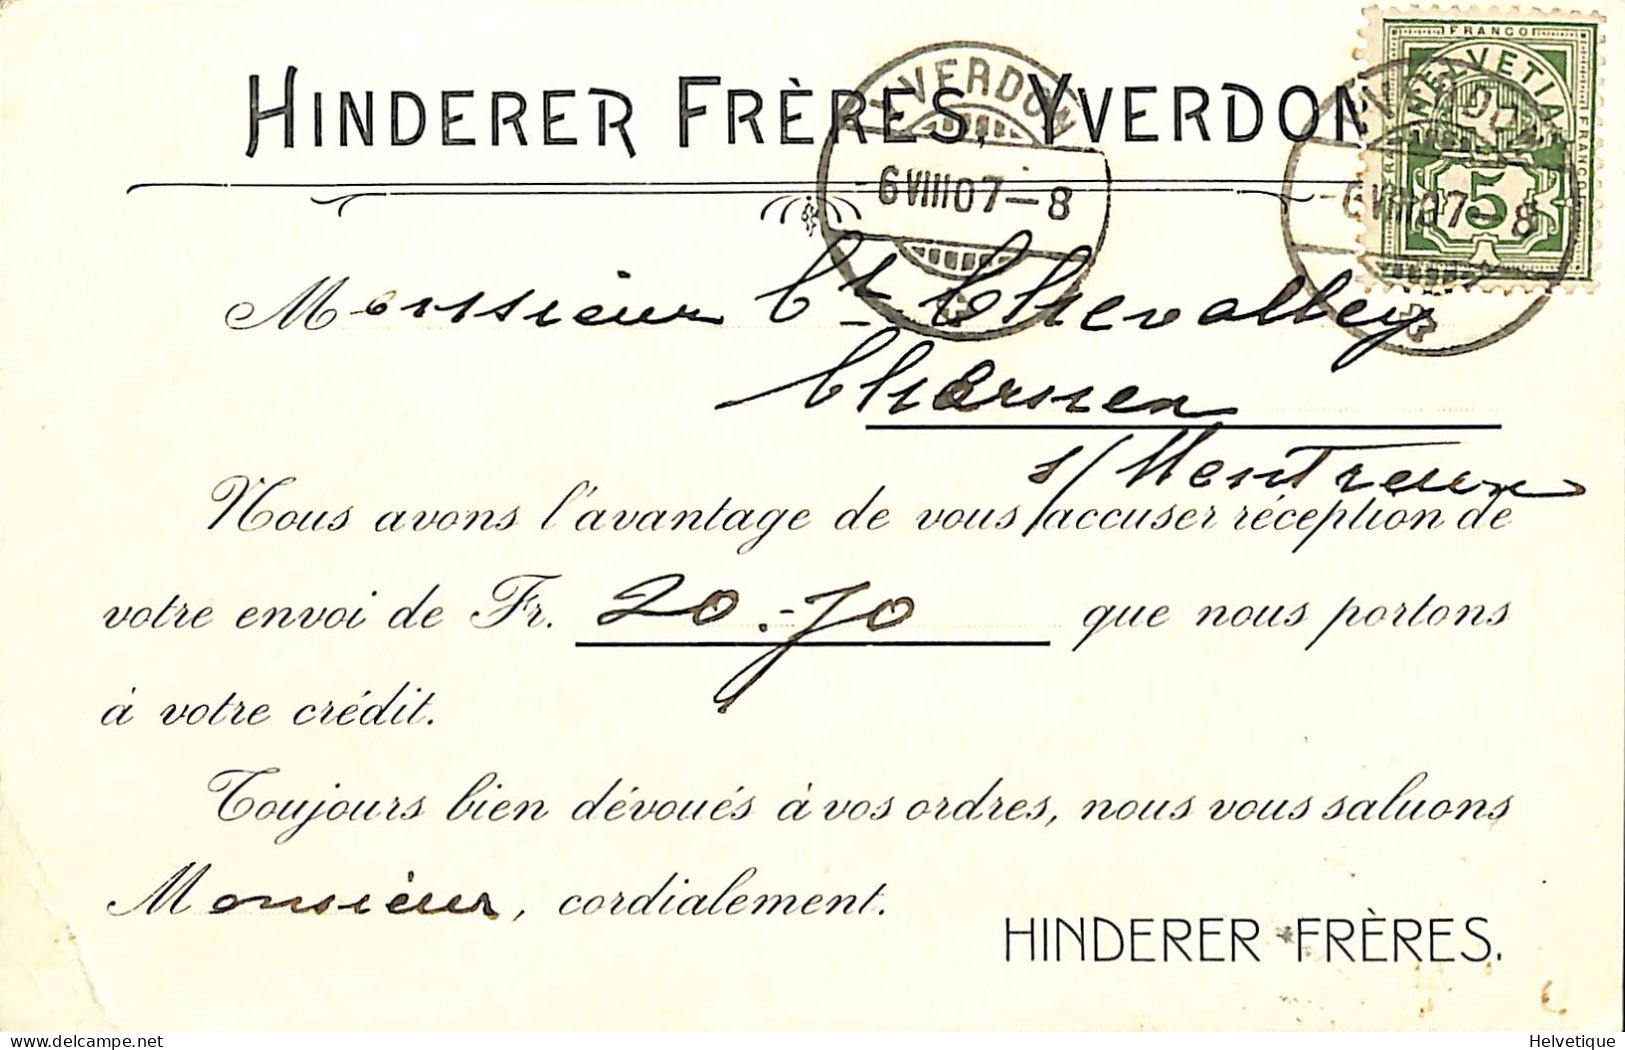 HINDERER FRÈRES, YVERDON
YVERDON
6 VIII 07 – 8
YVERDON
6 VIII 07 – 8
FRANCO
HELVETIA
FRANCO
5
Monsieur Ch. Chevalley
Charnex
s/ Montreux
Nous avons l'avantage de vous accuser réception de
votre envoi de Fr. 20.-70 que nous portons
à votre crédit.
Toujours bien dévoués à vos ordres, nous vous saluons
Monsieur, cordialement.
HINDERER FRÈRES.
delcampe.net
Helvetique